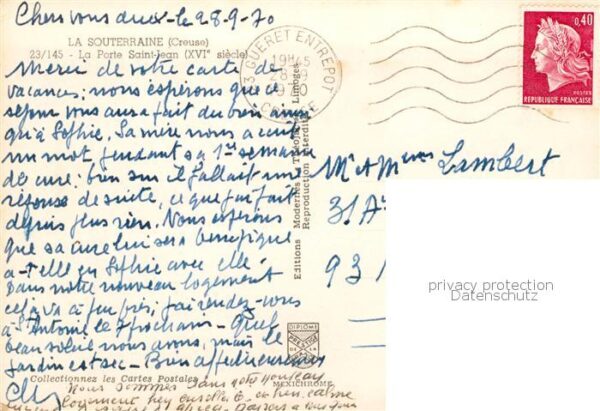 Chers vous deux - le 28-9-70
LA SOUTERRAINE (Creuse)
23/145 - La Porte Saint-Jean (XVIe siècle)
Merci de votre carte de
vacances; nous espérons que ce
séjour vous aura fait du bien ainsi
qu'à Sophie. Sa mère nous a écrit
un mot pendant sa 1ère semaine
de cure; bien sur il fallait une
réponse de suite, ce que j'ai fait
depuis plus rien. Nous espérons
que sa cure lui sera bénéfique
a-t-elle eu Sophie avec elle.
Dans notre nouveau logement
cela va à peu près; j'ai rendez-vous
à St Antoine le 7 prochain - Quel
beau soleil nous avons, mais le
jardin est sec - Bien affectueusement
Collectionnez les Cartes Postales
Nous sommes dans notre nouveau
logement
calme
23 GUERET ENTREPOT
19H45
28-9
1970
CREUSE
0,40
POSTES
REPUBLIQUE FRANÇAISE
Editions Modernes Théojac, Limoges
Reproduction Interdite
DIPLOME
PRESTIGE
DE LA
MEXICHROME
Mr & Mme Lambert
31 A
93
privacy protection
Datenschutz